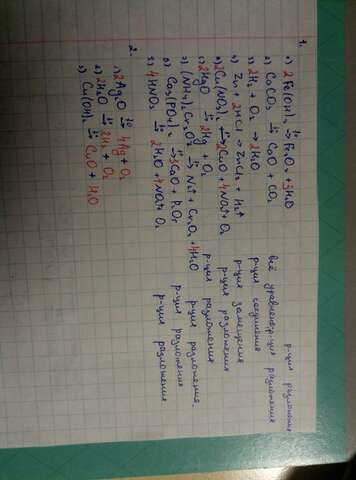 1.
1) 2Fe(OH)3 t°→ Fe2O3 + 3H2O р-ция разложения
2) CaCO3 t°→ CaO + CO2 всё уравнено р-ция разложения
3) 2H2 + O2 → 2H2O р-ция соединения
4) Zn + 2HCl → ZnCl2 + H2↑ р-ция замещения
5) 2Cu(NO3)2 t°→ 2CuO + 4NO2↑ + O2 р-ция разложения
6) 2HgO t°→ 2Hg + O2 р-ция разложения
7) (NH4)2Cr2O7 t°→ N2↑ + Cr2O3 + 4H2O р-ция разложения.
8) Ca3(PO4)2 t°→ 3CaO + P2O5 р-ция разложения
9) 4HNO3 t°→ 2H2O + 4NO2↑ + O2 р-ция разложения
2.
1) 2Ag2O t°→ 4Ag + O2
2) 2H2O t°→ 2H2 + O2
3) Cu(OH)2 t°→ CuO + H2O